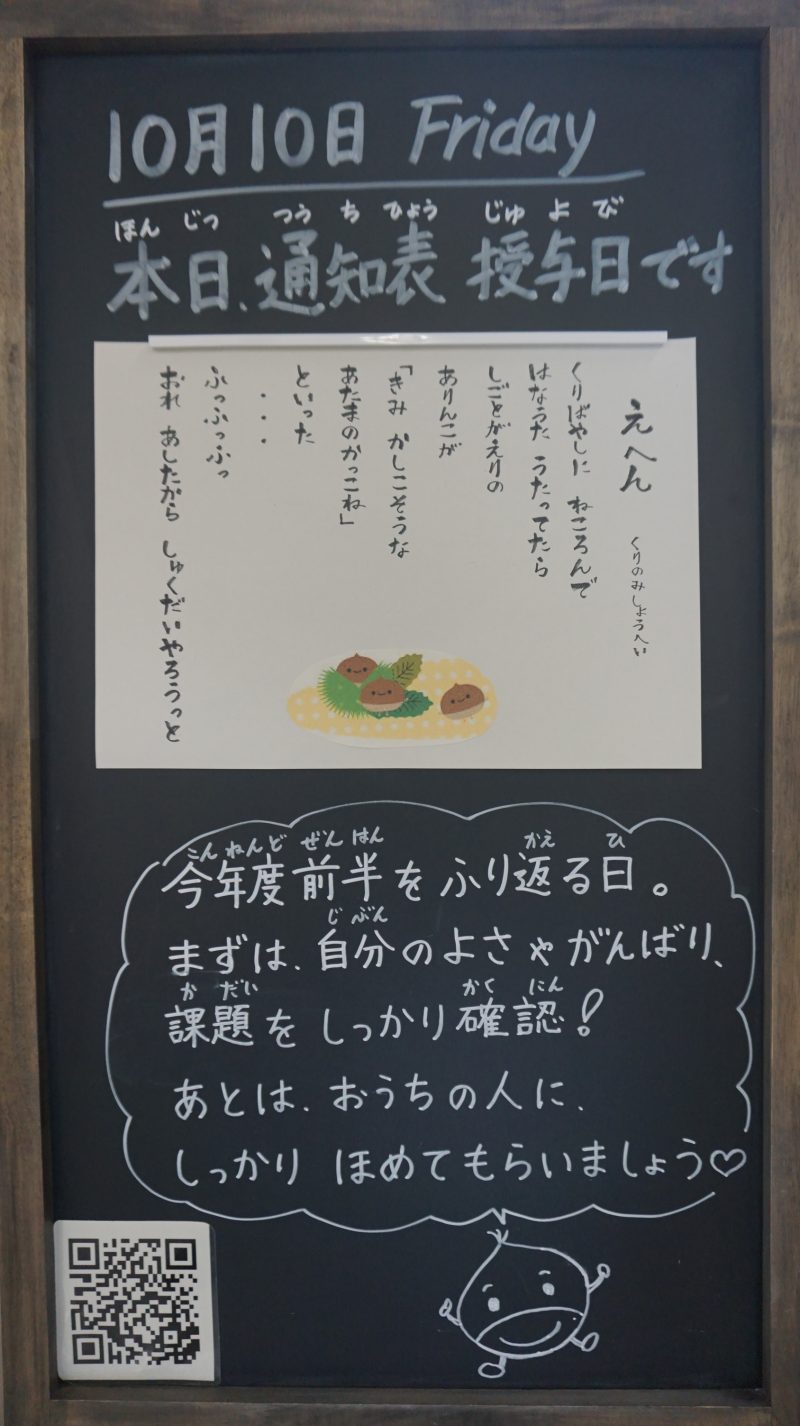 10月10日 Friday
ほん じつ つう ち ひょう じゅ よ び
本日、通知表 授与日です
えへん くりのみしょうへい
くりばやしに ねころんで
はなうた うたってたら
しごとがえりの
ありんこが
「きみ かしこそうな
あたまのかっこね」
といった
・・・
ふっふっふっ
おれ あしたから しゅくだいやろうっと
こん ねん ど ぜん はん かえ ひ
今年度前半をふり返る日。
じ ぶん
まずは、自分のよさやがんばり、
か だい かく にん
課題をしっかり確認!
あとは、おうちの人に、
しっかり ほめてもらいましょう♡